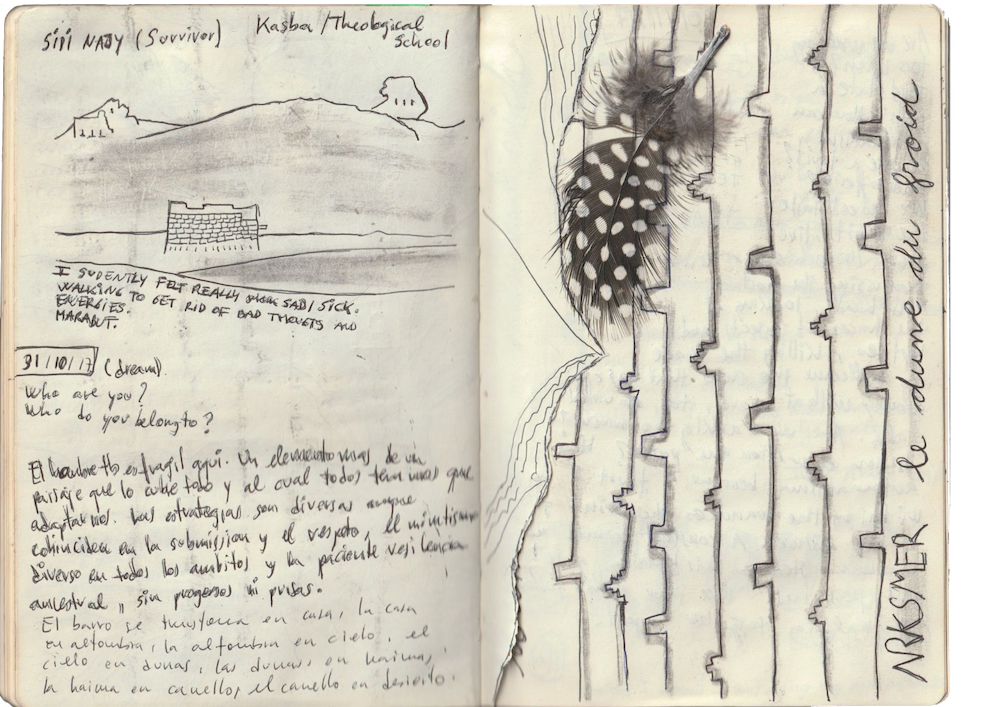 SIDI NAJY (Survivor)
Kasba / Theological
School
I SUDENTLY FELT REALLY SAD / SICK.
WALKING TO GET RID OF BAD THOUGTS AND
ENERGIES.
MARABUT.
31/10/17 (dream)
Who are you?
Who do you belong to?
El hombre es fragil aqui. Un elemento mas de un
paisaje que lo cubre todo y al cual todos tenemos que
adaptarnos. Las estrategias son diversas aunque
cohinciden en la submission y el respeto, el mimetismo
diverso en todos los ambitos y la paciente resilencia
ancestral, sin progresos ni prisas.
El barro se transforma en casa, la casa
en alfombra, la alfombra en cielo, el
cielo en dunas, las dunas en haimas,
la haima en camello, el camello en desierto.
NRKSMER le dune du froid